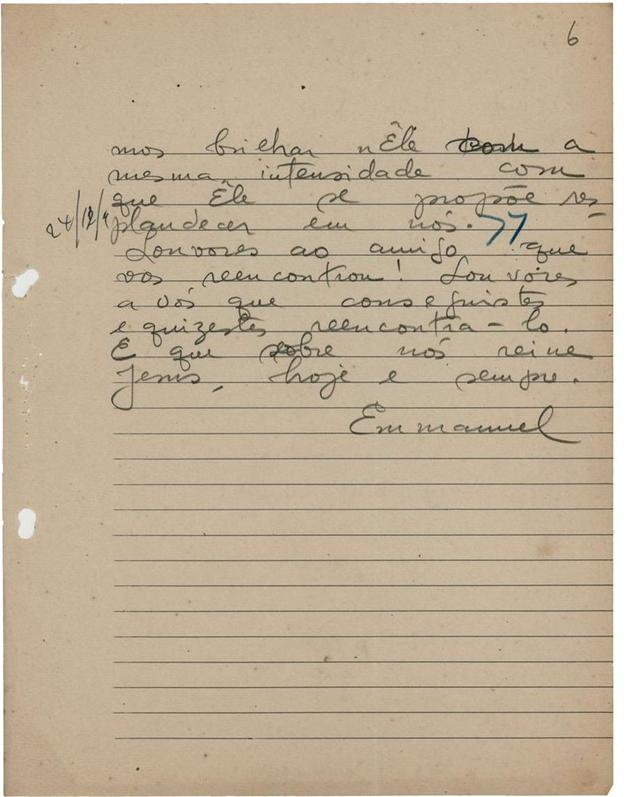 6
mos brilhar nÊle com a
mesma intensidade com
que Êle se propõe res-
plandecer em nós. "
24/12/4
Louvores ao amigo que
vos reencontrou! Louvores
a vós que conseguistes
e quizestes reencontra-lo.
E que sobre nós reine
Jesus, hoje e sempre.
Emmanuel